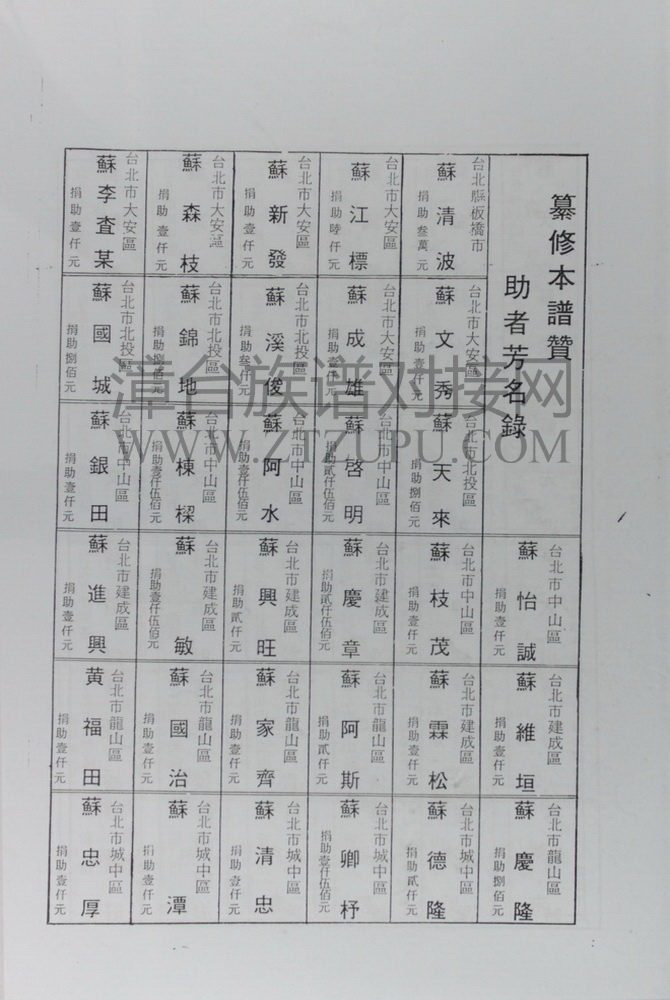 纂修本譜贊
助者芳名錄
台北縣板橋市
蘇清波
捐助叁萬元
台北市大安區
蘇江標
捐助陸仟元
台北市大安區
蘇新發
捐助壹仟元
台北市大安區
蘇森枝
捐助壹仟元
台北市大安區
蘇李査某
捐助壹仟元
台北市大安區
蘇文秀
捐助壹仟元
台北市大安區
蘇成雄
捐助壹仟元
台北市北投區
蘇溪俊
捐助叁仟元
台北市北投區
蘇錦地
捐助捌佰元
台北市北投區
蘇國城
捐助捌佰元
台北市北投區
蘇天來
捐助捌佰元
台北市中山區
蘇啓明
捐助貳仟伍佰元
台北市中山區
蘇阿水
捐助壹仟伍佰元
台北市中山區
蘇棟樑
捐助壹仟伍佰元
台北市中山區
蘇銀田
捐助壹仟元
台北市中山區
蘇怡誠
捐助壹仟元
台北市中山區
蘇枝茂
捐助壹仟元
台北市建成區
蘇慶章
捐助貳仟伍佰元
台北市建成區
蘇興旺
捐助貳仟元
台北市建成區
蘇敏
捐助壹仟伍佰元
台北市建成區
蘇進興
捐助壹仟元
台北市建成區
蘇維垣
捐助壹仟元
台北市建成區
蘇霖松
捐助壹仟元
台北市龍山區
蘇阿斯
捐助貳仟元
台北市龍山區
蘇家齊
捐助壹仟元
台北市龍山區
蘇國治
捐助壹仟元
台北市龍山區
黄福田
捐助壹仟元
台北市龍山區
蘇慶隆
捐助捌佰元
台北市城中區
蘇德隆
捐助貳仟元
台北市城中區
蘇卿杼
捐助壹仟伍佰元
台北市城中區
蘇清忠
捐助壹仟元
台北市城中區
蘇潭
捐助壹仟元
台北市城中區
蘇忠厚
捐助壹仟元
漳台族谱对接网
WWW.ZTZUPU.COM